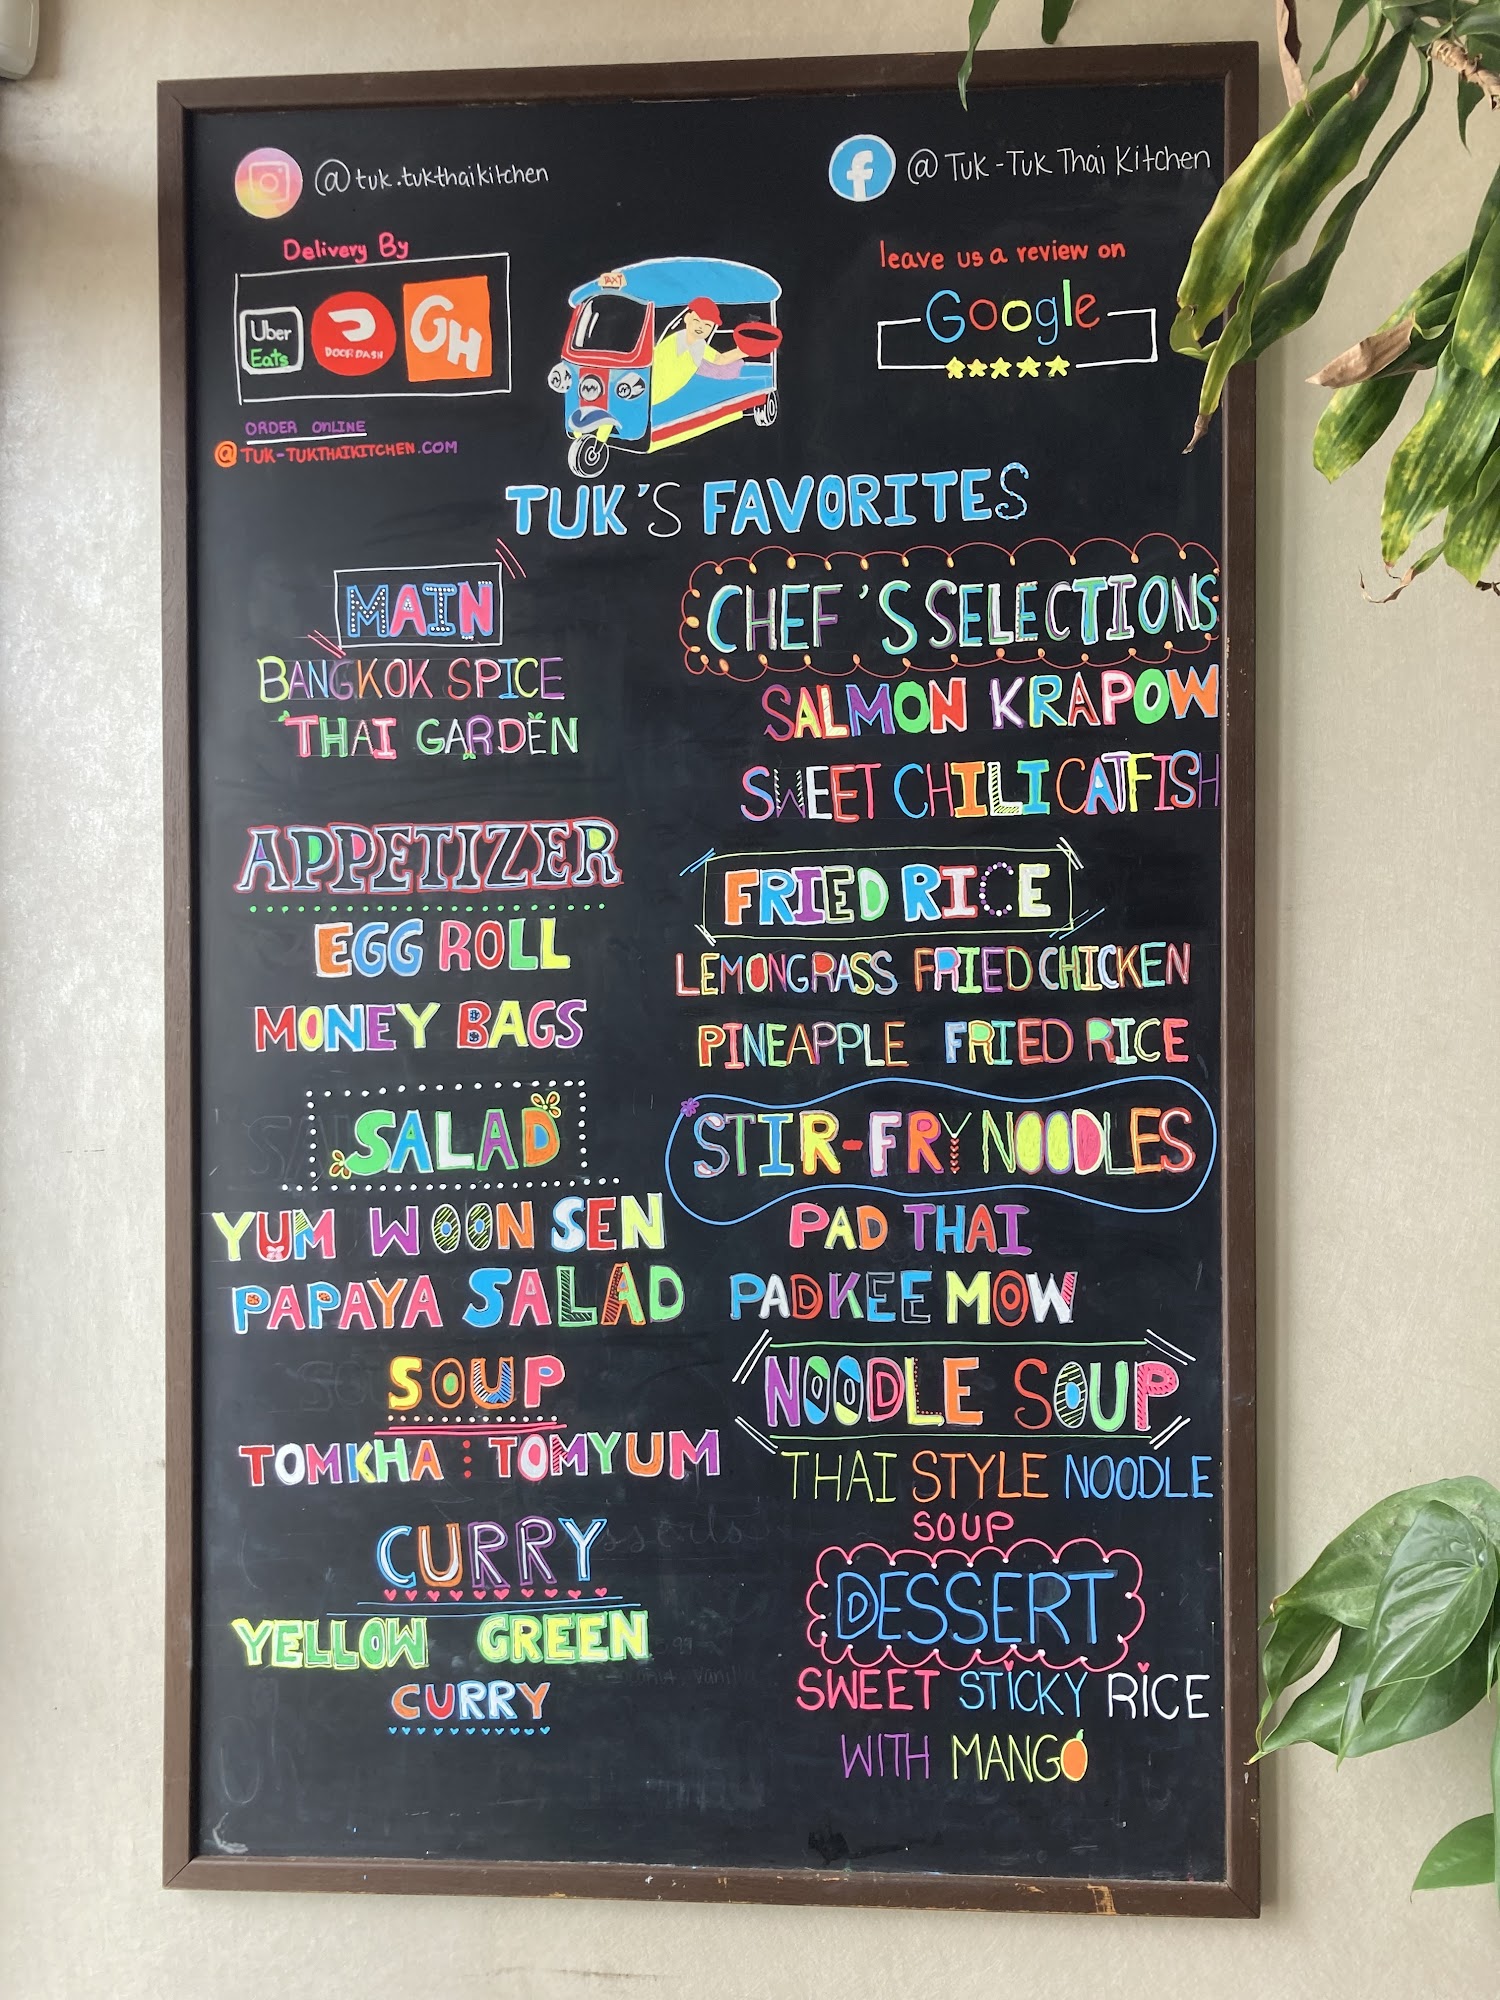 @tuk.tukthaikitchen
@ Tuk-Tuk Thai Kitchen
Delivery By
Uber
Eats
DOORDASH
GH
ORDER ONLINE
@TUK-TUKTHAIKITCHEN.COM
TAXI
leave us a review on
Google
TUK'S FAVORITES
MAIN
BANGKOK SPICE
THAI GARDEN
APPETIZER
EGG ROLL
MONEY BAGS
SALAD
YUM WOON SEN
PAPAYA SALAD
SOUP
TOMKHA : TOMYUM
CURRY
YELLOW GREEN
CURRY
CHEF'S SELECTIONS
SALMON KRAPOW
SWEET CHILI CATFISH
FRIED RICE
LEMONGRASS FRIED CHICKEN
PINEAPPLE FRIED RICE
STIR-FRY NOODLES
PAD THAI
PAD KEE MOW
NOODLE SOUP
THAI STYLE NOODLE
SOUP
DESSERT
SWEET STICKY RICE
WITH MANGO